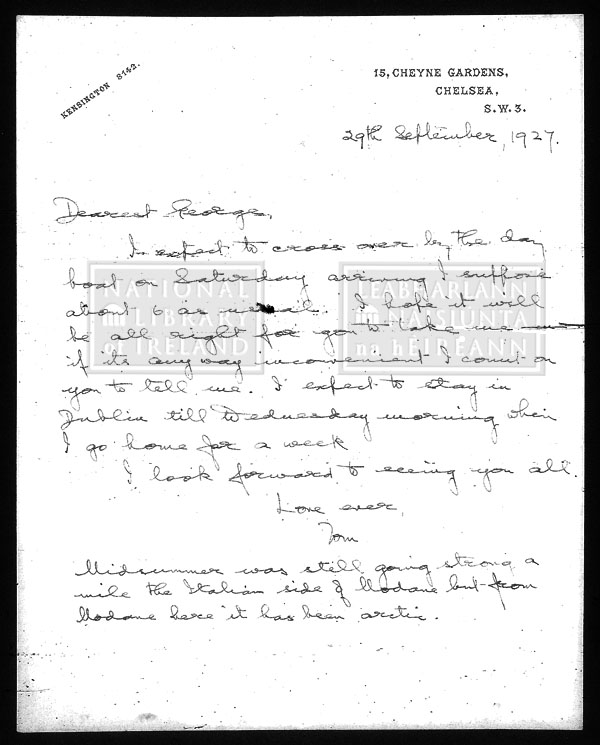 KENSINGTON 8142.
15, CHEYNE GARDENS,
CHELSEA,
S.W.3.
29th September, 1927.
Dearest George,
I expect to cross over by the day
boat on Saturday arriving I suppose
about 6 as usual. I hope it will
be all right for you to take me in
if its any way inconvenient I count on
you to tell me. I expect to stay in
Dublin till Wednesday morning when
I go home for a week
I look forward to seeing you all.
Love ever,
Tom
Midsummer was still going strong a
mile the Italian side of Modane but from
Modane here it has been arctic.
NATIONAL
LIBRARY
OF IRELAND
LEABHARLANN
NÁISIÚNTA
na hÉIREANN